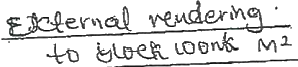 External rendering
to block work M²